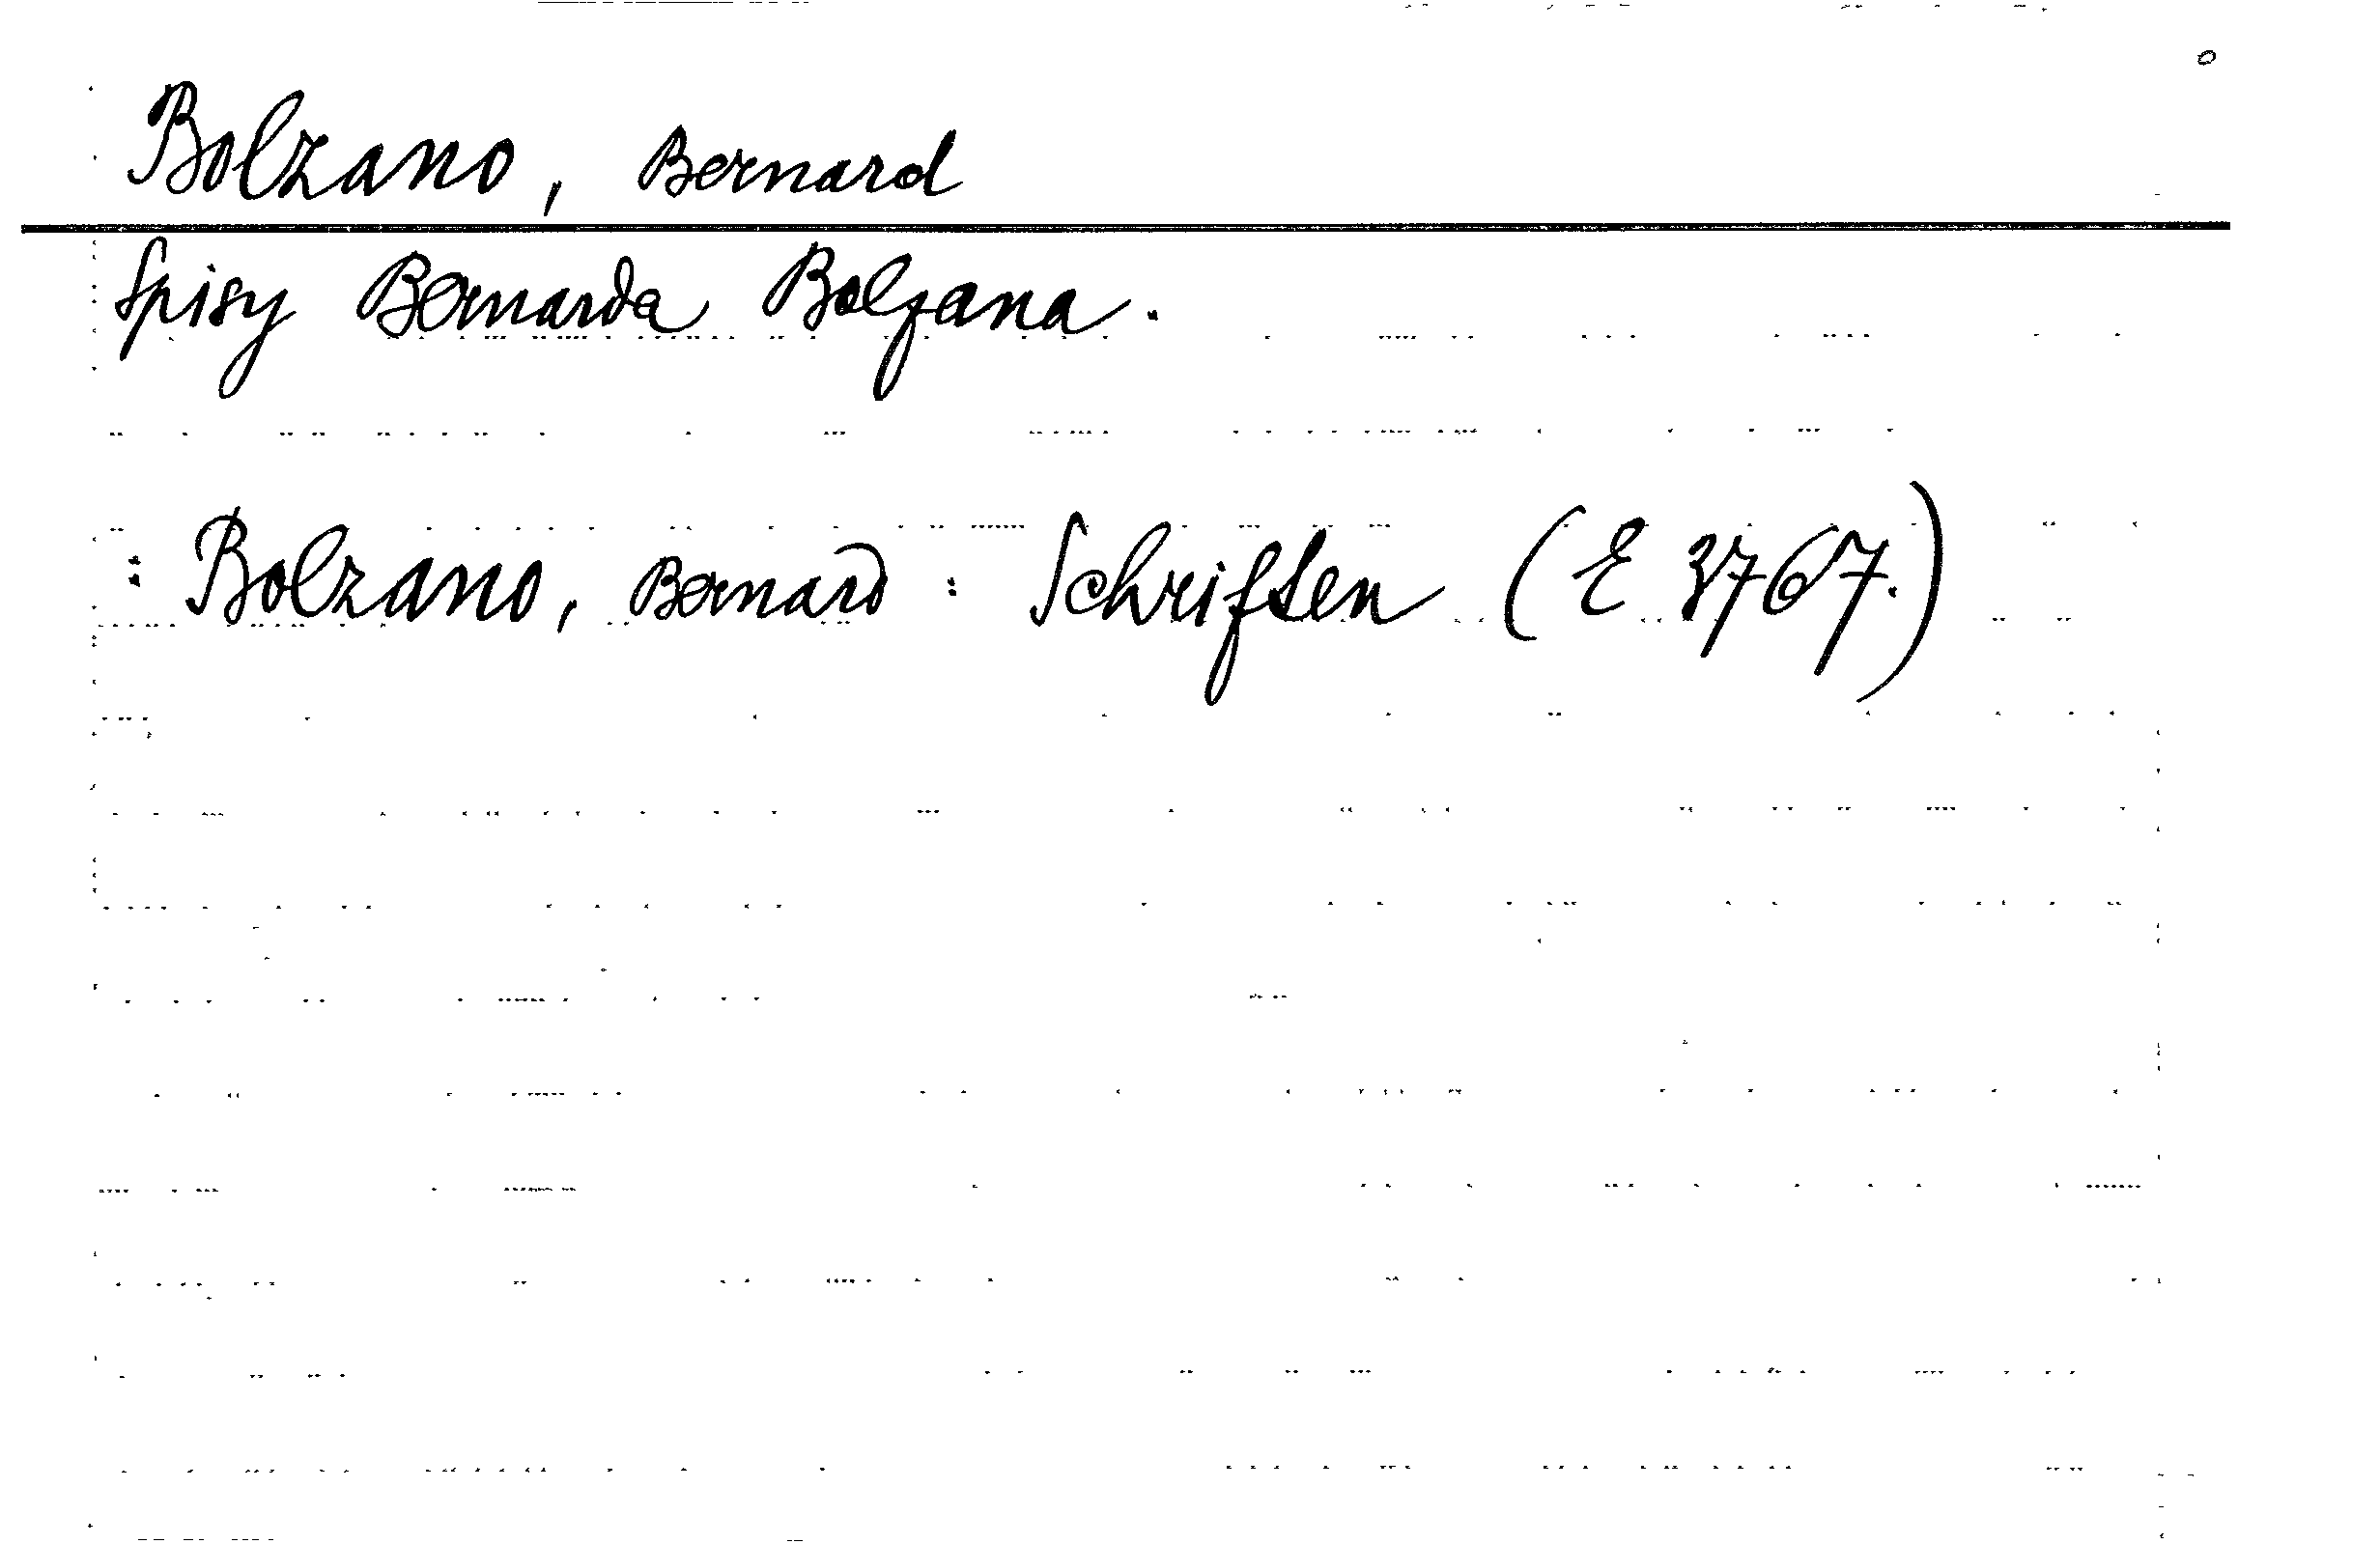 Bolzano, Bernard
Spisy Bernarda Bolzana.
: Bolzano, Bernard : Schriften (E 3767.)